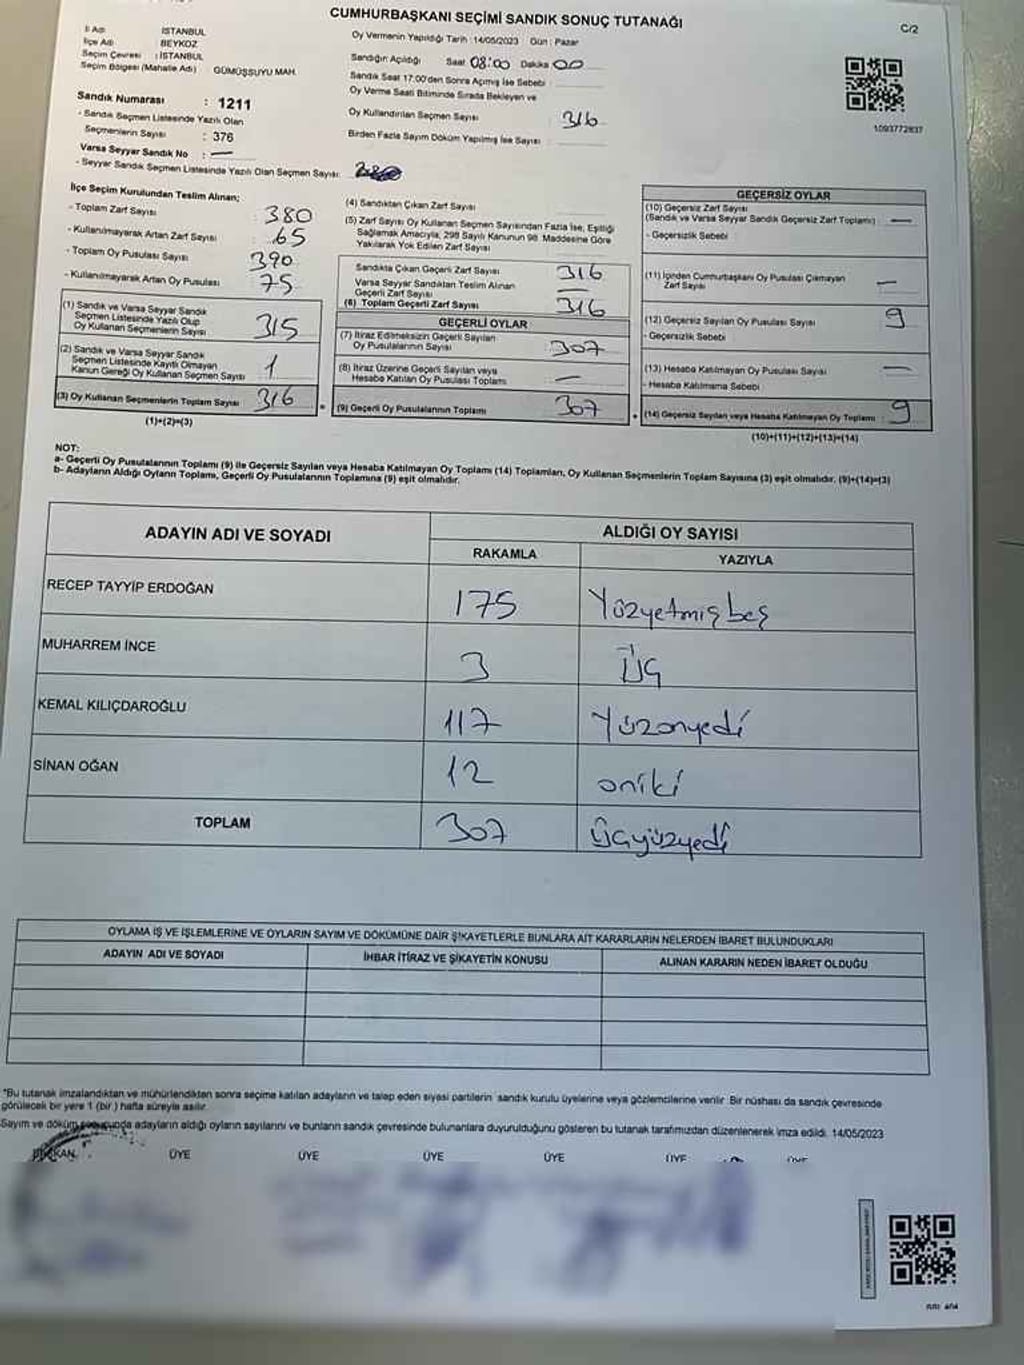 CUMHURBAŞKANI SEÇİMİ SANDIK SONUÇ TUTANAĞI
C/2
İl Adı : İSTANBUL
İlçe Adı : BEYKOZ
Seçim Çevresi : İSTANBUL
Seçim Bölgesi (Mahalle Adı) : GÜMÜŞSUYU MAH.
Sandık Numarası : 1211
- Sandık Seçmen Listesinde Yazılı Olan
Seçmenlerin Sayısı : 376
Varsa Seyyar Sandık No : —
- Seyyar Sandık Seçmen Listesinde Yazılı Olan Seçmen Sayısı:
Oy Vermenin Yapıldığı Tarih : 14/05/2023 Gün : Pazar
Sandığın Açıldığı Saat 08:00 Dakika 00
Sandık Saat 17:00'den Sonra Açılmış İse Sebebi :
Oy Verme Saati Bitiminde Sırada Bekleyen ve
Oy Kullandırılan Seçmen Sayısı : 316
Birden Fazla Sayım Döküm Yapılmış İse Sayısı :
1093772837
İlçe Seçim Kurulundan Teslim Alınan;
- Toplam Zarf Sayısı 380
- Kullanılmayarak Artan Zarf Sayısı 65
- Toplam Oy Pusulası Sayısı 390
- Kullanılmayarak Artan Oy Pusulası 75
(1) Sandık ve Varsa Seyyar Sandık
Seçmen Listesinde Yazılı Olup
Oy Kullanan Seçmenlerin Sayısı 315
(2) Sandık ve Varsa Seyyar Sandık
Seçmen Listesinde Kayıtlı Olmayan
Kanun Gereği Oy Kullanan Seçmen Sayısı 1
(3) Oy Kullanan Seçmenlerin Toplam Sayısı 316
(1)+(2)=(3)
(4) Sandıktan Çıkan Zarf Sayısı
(5) Zarf Sayısı Oy Kullanan Seçmen Sayısından Fazla İse, Eşitliği
Sağlamak Amacıyla, 298 Sayılı Kanunun 98. Maddesine Göre
Yakılarak Yok Edilen Zarf Sayısı
Sandıkta Çıkan Geçerli Zarf Sayısı 316
Varsa Seyyar Sandıktan Teslim Alınan
Geçerli Zarf Sayısı —
(6) Toplam Geçerli Zarf Sayısı 316
GEÇERLİ OYLAR
(7) İtiraz Edilmeksizin Geçerli Sayılan
Oy Pusulalarının Sayısı 307
(8) İtiraz Üzerine Geçerli Sayılan veya
Hesaba Katılan Oy Pusulası Toplamı —
(9) Geçerli Oy Pusulalarının Toplamı 307
GEÇERSİZ OYLAR
(10) Geçersiz Zarf Sayısı
(Sandık ve Varsa Seyyar Sandık Geçersiz Zarf Toplamı) —
- Geçersizlik Sebebi :
(11) İçinden Cumhurbaşkanı Oy Pusulası Çıkmayan
Zarf Sayısı —
(12) Geçersiz Sayılan Oy Pusulası Sayısı 9
- Geçersizlik Sebebi :
(13) Hesaba Katılmayan Oy Pusulası Sayısı —
- Hesaba Katılmama Sebebi
(14) Geçersiz Sayılan veya Hesaba Katılmayan Oy Toplamı 9
(10)+(11)+(12)+(13)=(14)
NOT:
a- Geçerli Oy Pusulalarının Toplamı (9) ile Geçersiz Sayılan veya Hesaba Katılmayan Oy Toplamı (14) Toplamları, Oy Kullanan Seçmenlerin Toplam Sayısına (3) eşit olmalıdır. (9)+(14)=(3)
b- Adayların Aldığı Oyların Toplamı, Geçerli Oy Pusulalarının Toplamına (9) eşit olmalıdır.
ADAYIN ADI VE SOYADI
ALDIĞI OY SAYISI
RAKAMLA YAZIYLA
RECEP TAYYİP ERDOĞAN 175 Yüzyetmişbeş
MUHARREM İNCE 3 Üç
KEMAL KILIÇDAROĞLU 117 Yüzonyedi
SİNAN OĞAN 12 oniki
TOPLAM 307 Üçyüzyedi
OYLAMA İŞ VE İŞLEMLERİNE VE OYLARIN SAYIM VE DÖKÜMÜNE DAİR ŞİKAYETLERLE BUNLARA AİT KARARLARIN NELERDEN İBARET BULUNDUKLARI
ADAYIN ADI VE SOYADI İHBAR İTİRAZ VE ŞİKAYETİN KONUSU ALINAN KARARIN NEDEN İBARET OLDUĞU
*Bu tutanak imzalandıktan ve mühürlendikten sonra seçime katılan adayların ve talep eden siyasi partilerin sandık kurulu üyelerine veya gözlemcilerine verilir. Bir nüshası da sandık çevresinde
görülecek bir yere 1 (bir) hafta süreyle asılır.
Sayım ve döküm sonucunda adayların aldığı oyların sayılarını ve bunların sandık çevresinde bulunanlara duyurulduğunu gösteren bu tutanak tarafımızdan düzenlenerek imza edildi. 14/05/2023
BAŞKAN ÜYE ÜYE ÜYE ÜYE ÜYE ÜYE